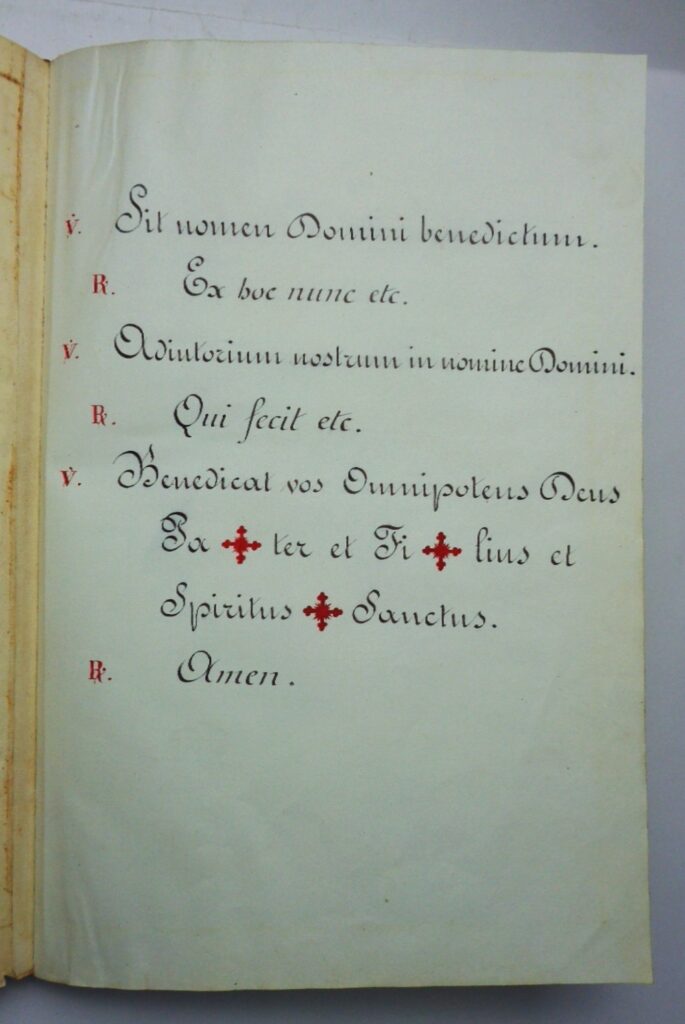 ℣. Sit nomen Domini benedictum.
℟. Ex hoc nunc etc.
℣. Adiutorium nostrum in nomine Domini.
℟. Qui fecit etc.
℣. Benedicat vos Omnipotens Deus
Pa ✠ ter et Fi ✠ lius et
Spiritus ✠ Sanctus.
℟. Amen.